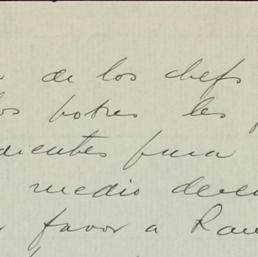 de los chefs
los pobres les
dientes para
medio dece
favor a Ra